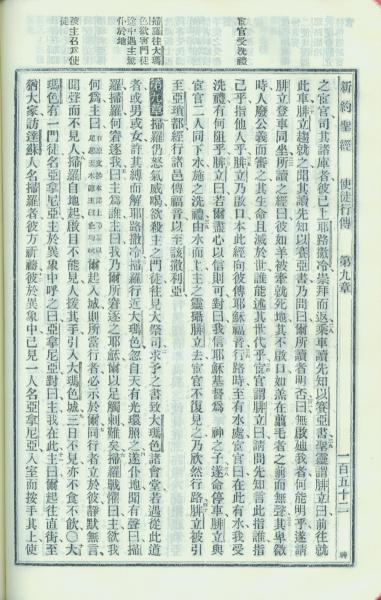 新約聖經 使徒行傳 第九章 一百五十二
宦官受洗禮
之宦官司其諸庫者彼已上耶路撒冷崇拜而返乘車讀先知以賽亞書聖靈謂腓立曰前往就
此車腓立趨就之聞其讀先知以賽亞書乃問曰爾所讀者明否曰無啟廸我者何能明乎遂請
腓立登車同坐所讀之經曰彼如羊被牽就死地其不啟口如羔在翦毛者之前而無聲其卑微
時人廢公義而審之其生命且滅於世誰能述其世代乎宦官謂腓立曰請問先知言此指誰指
己乎指他人乎腓立乃啟口本此經向彼傳耶穌福音行路時至有水處宦官曰在此有水我受
洗禮有何阻乎腓立曰若爾盡心以信則可對曰我信耶穌基督為 神之子遂命停車腓立與
宦官二人同下水施之洗禮由水而上主之靈攜腓立去宦官不復見之乃欣然行路腓立被引
至亞瑣都經行諸邑傳福音以至該撒利亞
掃羅往大瑪
色欲窘門徒
途中遇主驚
仆於地
第九章 掃羅仍怒氣威喝欲殺主之門徒往見大祭司求予之書致大瑪色諸會堂若遇從此道
者或男或女許其縛而解耶路撒冷掃羅行近大瑪色忽自天有光環照之遂仆地聞有聲曰掃
羅掃羅何窘逐我曰主為誰主曰我乃爾所窘逐之耶穌爾以足觸刺難矣掃羅戰慄曰主欲我
何為主曰爾起入城則所當行者必示於爾同行者立於彼靜默無言
被主召為使
徒
聞聲而不見人掃羅自地起啟目不能見人援其手引入大瑪色城三日不見亦不食不飲〇大
瑪色有一門徒名亞拿尼亞主於異象中呼之曰亞拿尼亞對曰主我在此主曰爾起往直街至
猶大家訪達蘇人名掃羅者彼方祈禱彼於異象中已見一人名亞拿尼亞入室而按手其上使